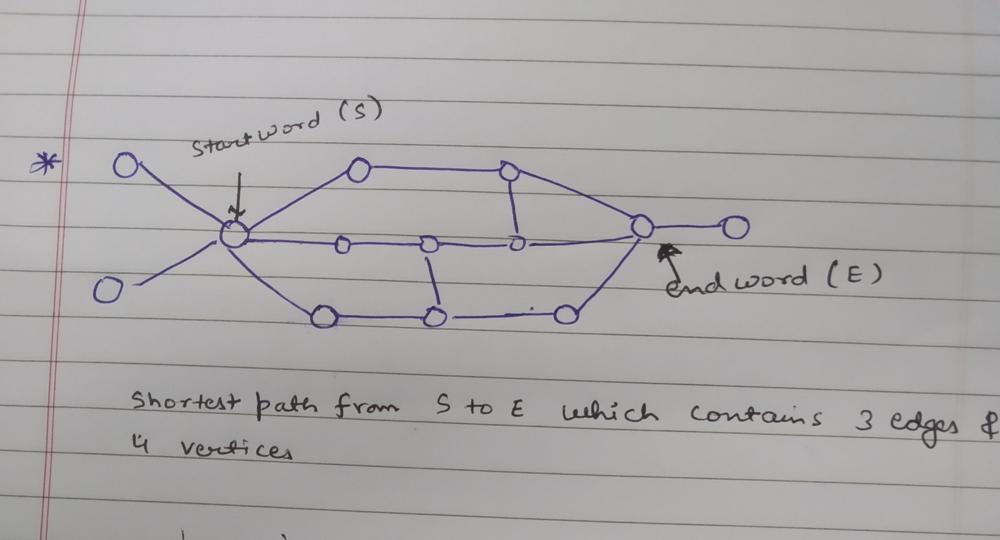 Start word (S)
*
end word (E)
Shortest path from S to E which contains 3 edges &
4 vertices